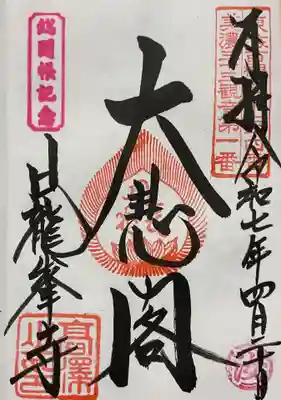 奉拝 令和七年四月二十日
美濃三十三観音第一番
大悲閣
総開帳記念
日龍峯寺
高澤山印